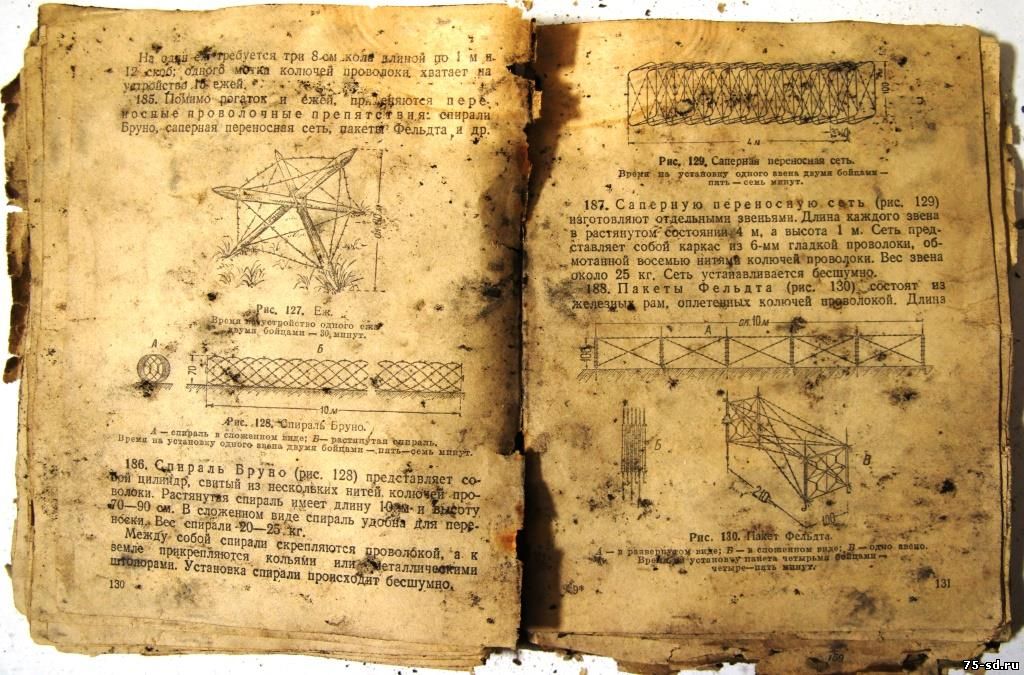 На один еж требуется три 8-см кола длиной по 1 м и
12 скоб; одного мотка колючей проволоки хватает на
устройство 15 ежей.
185. Помимо рогаток и ежей, применяются пере-
носные проволочные препятствия: спирали
Бруно, саперная переносная сеть, пакеты Фельдта и др.
Рис. 127. Еж.
Время на устройство одного ежа
двумя бойцами — 30 минут.
А
Б
70
10 м
Рис. 128. Спираль Бруно.
А — спираль в сложенном виде; Б — растянутая спираль.
Время на установку одного звена двумя бойцами — пять—семь минут.
186. Спираль Бруно (рис. 128) представляет со-
бой цилиндр, свитый из нескольких нитей колючей про-
волоки. Растянутая спираль имеет длину 10 м и высоту
70—90 см. В сложенном виде спираль удобна для пере-
носки. Вес спирали 20—25 кг.
Между собой спирали скрепляются проволокой, а к
земле прикрепляются кольями или металлическими
штопорами. Установка спирали происходит бесшумно.
130
100
4 м
Рис. 129. Саперная переносная сеть.
Время на установку одного звена двумя бойцами —
пять — семь минут.
187. Саперную переносную сеть (рис. 129)
изготовляют отдельными звеньями. Длина каждого звена
в растянутом состоянии 4 м, а высота 1 м. Сеть пред-
ставляет собой каркас из 6-мм гладкой проволоки, об-
мотанной восемью нитями колючей проволоки. Вес звена
около 25 кг. Сеть устанавливается бесшумно.
188. Пакеты Фельдта (рис. 130) состоят из
железных рам, оплетенных колючей проволокой. Длина
ок. 10 м
А
103
Б
В
210
100
Рис. 130. Пакет Фельдта.
А — в развернутом виде; Б — в сложенном виде; В — одно звено.
Время на установку пакета четырьмя бойцами —
четыре—пять минут.
9*
131
159
75-sd.ru